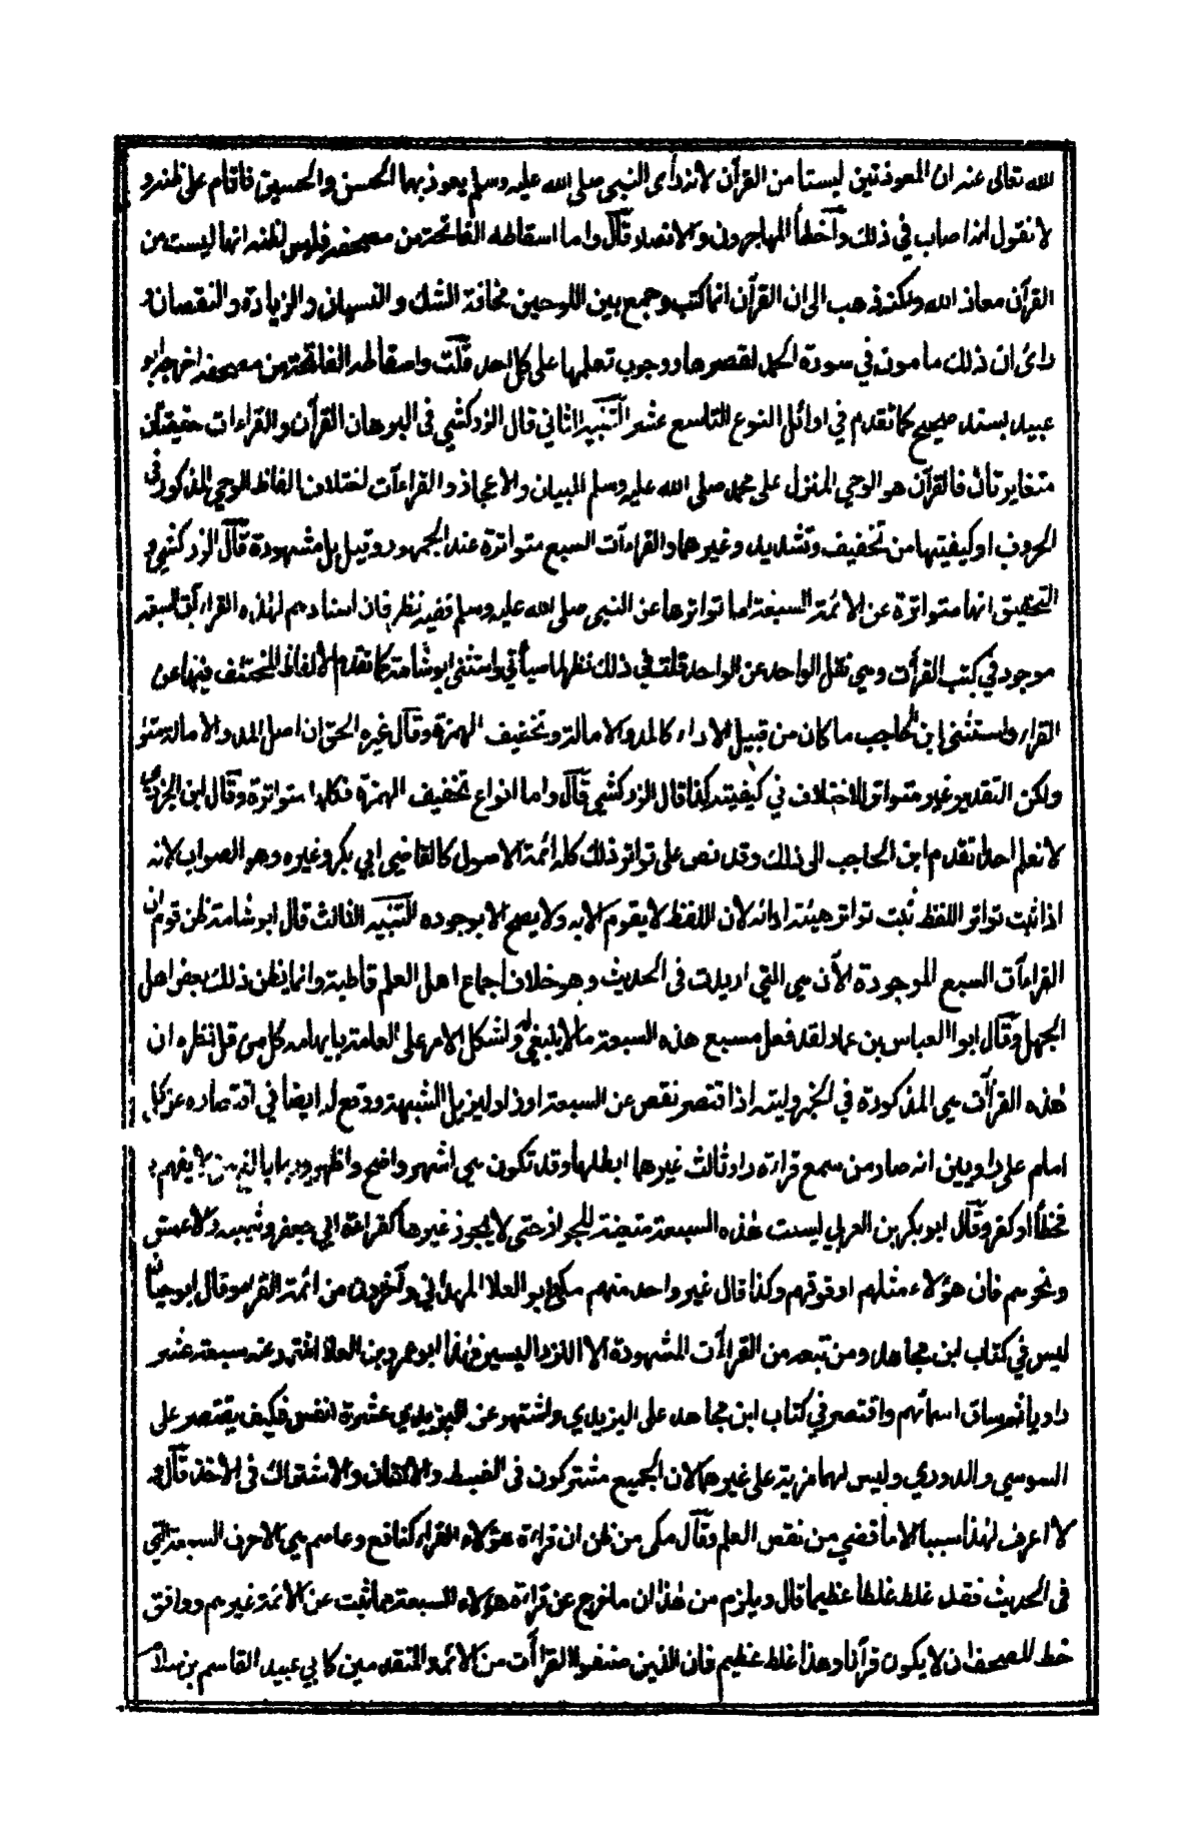 الله تعالى عنه ان المعوذتين ليستا من القرآن لانه رأى النبي صلى الله عليه وسلم يعوذ بهما الحسن والحسين فاقام على ظنه و
لا نقول انه اصاب في ذلك واخطأ المهاجرون والانصار قال واما اسقاطه الفاتحة من مصحفه فليس لظنه انها ليست من
القرآن معاذ الله ولكنه ذهب الى ان القرآن انما كتب وجمع بين اللوحين مخافة الشك والنسيان والزيادة والنقصان
رأى ان ذلك مامون في سورة الحمد لقصرها ووجوب تعلمها على كل احد قلت واسقاطه الفاتحة من مصحفه اخرجه ابو
عبيد بسند صحيح كما تقدم في اوائل النوع التاسع عشر التنبيه الثاني قال الزركشي فى البرهان القرآن والقراءات حقيقتان
متغايرتان فالقرآن هو الوحي المنزل على محمد صلى الله عليه وسلم للبيان والاعجاز والقراءات اختلاف الفاظ الوحي المذكور في
الحروف او كيفيتها من تخفيف وتشديد وغيرهما والقراءات السبع متواترة عند الجمهور وقيل بل مشهورة قال الزركشي و
التحقيق انها متواترة عن الائمة السبعة اما تواترها عن النبي صلى الله عليه وسلم ففيه نظر فان اسنادهم لهذه القراءات السبعة
موجود في كتب القرأت وهي نقل الواحد عن الواحد قلت في ذلك نظر لما سيأتي واستثنى ابو شامة كما تقدم الالفاظ المختلف فيها عن
القراء واستثنى ابن الحاجب ما كان من قبيل الاداء كالمد والامالة وتخفيف الهمزة وقال غيره الحق ان اصل المد والامالة متو
ولكن التقدير غير متواتر للاختلاف في كيفيته كذا قال الزركشي قال واما انواع تخفيف الهمزة فكلها متواترة وقال ابن الجزري
لا نعلم احدا تقدم ابن الحاجب الى ذلك وقد نص على تواتر ذلك كله ائمة الاصول كالقاضي ابي بكر وغيره وهو الصواب لانه
اذا ثبت تواتر اللفظ ثبت تواتر هيئة ادائه لان اللفظ لا يقوم الا به ولا يصح الا بوجوده التنبيه الثالث قال ابو شامة ظن قوم ان
القراءات السبع الموجودة الآن هي التي اريدت فى الحديث وهو خلاف اجماع اهل العلم قاطبة وانما يظن ذلك بعض اهل
الجهل وقال ابو العباس بن عمار لقد فعل مسبع هذه السبعة ما لا ينبغي له واشكل الامر على العامة بايهامه كل من قل نظره ان
هذه القرآت هي المذكورة في الخبر وليته اذا اقتصر نقص عن السبعة او زاد ليزيل الشبهة ووقع له ايضا في اقتصاره عن كل
امام على راويين انه صار من سمع قراءة راو ثالث غيرهما ابطلها وقد تكون هي اشهر واصح واظهر وربما بالغ من لا يفهم
فخطأ او كفر وقال ابو بكر بن العربي ليست هذه السبعة متعينة للجواز حتى لا يجوز غيرها كقراءة ابي جعفر وشيبة والاعمش
ونحوهم فان هؤلاء مثلهم او فوقهم وكذا قال غير واحد منهم مكي وابو العلا الهمداني وآخرون من ائمة القراء وقال ابو حيان
ليس في كتاب ابن مجاهد ومن تبعه من القرأت المشهورة الا النزر اليسير فهذا ابو عمرو بن العلا اشتهر عنه سبعة عشر
راويا ثم ساق اسمائهم واقتصر في كتاب ابن مجاهد على اليزيدي واشتهر عن اليزيدي عشرة انفس فكيف يقتصر على
السوسي والدوري وليس لهما مزية على غيرهما لان الجميع مشتركون فى الضبط والاتقان والاشتراك فى الاخذ قال و
لا اعرف لهذا سببا الا ما قضي من نقص العلم وقال مكى من ظن ان قراءة هؤلاء القراء كنافع وعاصم هي الاحرف السبعة التي
فى الحديث فقد غلط غلطا عظيما قال ويلزم من هذا ان ما خرج عن قراءة هؤلاء السبعة مما ثبت عن الائمة غيرهم ووافق
خط المصحف ان لا يكون قرآنا وهذا غلط عظيم فان الذين صنفوا القرأت من الائمة المتقدمين كابي عبيد القاسم بن سلام